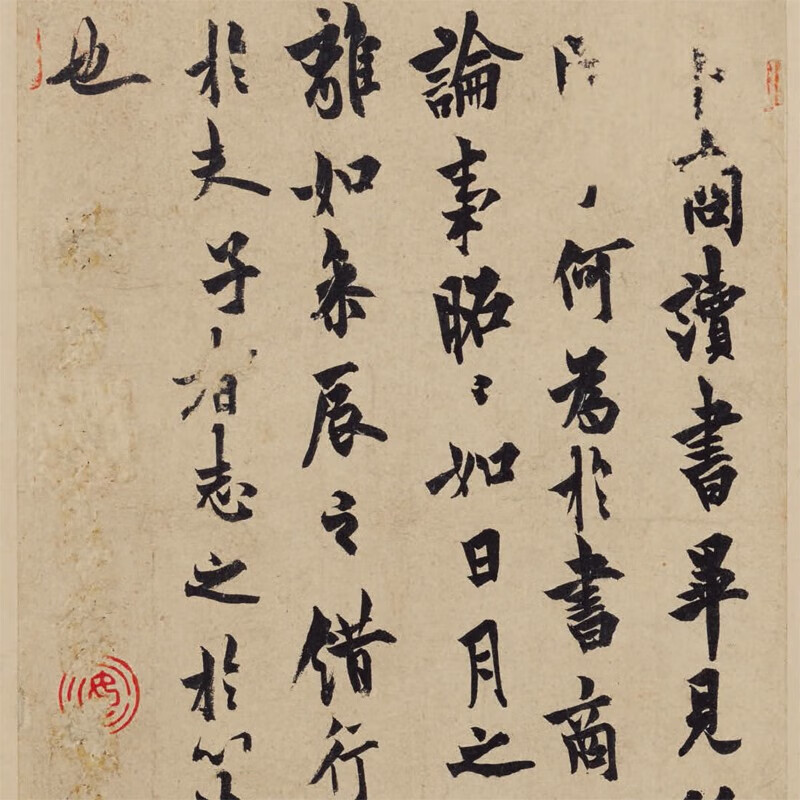 卜商讀書畢見
何為於書商
論事昭〻如日月之
離如參辰之錯行
於夫子者志之於心
也